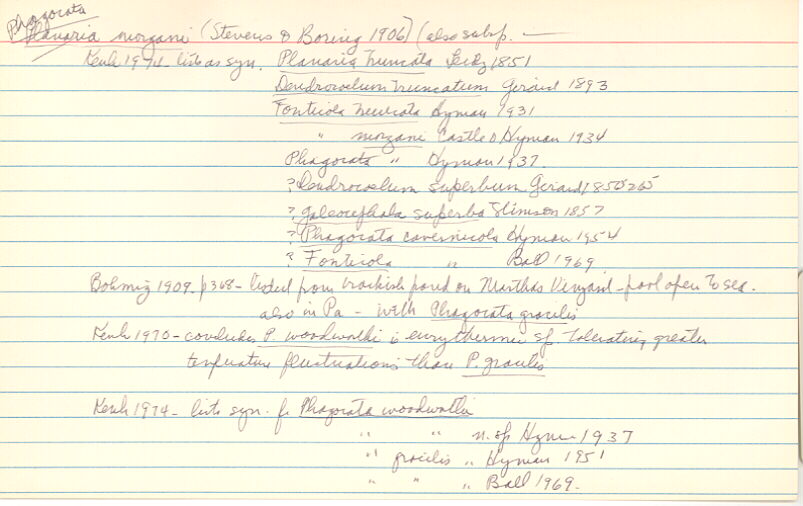 Phagocata
Planaria morgani (Stevens & Boring 1906) (also subsp. —
Kenk 1974 - lists as syn. Planaria truncata Leidy 1851
Dendrocoelum truncatum Girard 1893
Fonticola truncata Hyman 1931
" morgani Castle & Hyman 1934
Phagocata " Hyman 1937.
? Dendrocoelum superbum Girard 1850
? Galeocephala superba Stimson 1857
? Phagocata cavernicola Hyman 1954
? Fonticola " Ball 1969
Bohmig 1909. p368 - listed from brackish pond on Marthas Vinyard - pool open to sea.
also in Pa - with Phagocata gracilis
Kenk 1970 - concludes P. woodworthi is eurythermic sp. tolerating greater
temperature fluctuations than P. gracilis
Kenk 1974 - lists syn. for Phagocata woodworthi
" " n. sp Hyman 1937
" gracilis " Hyman 1951
" " " Ball 1969.